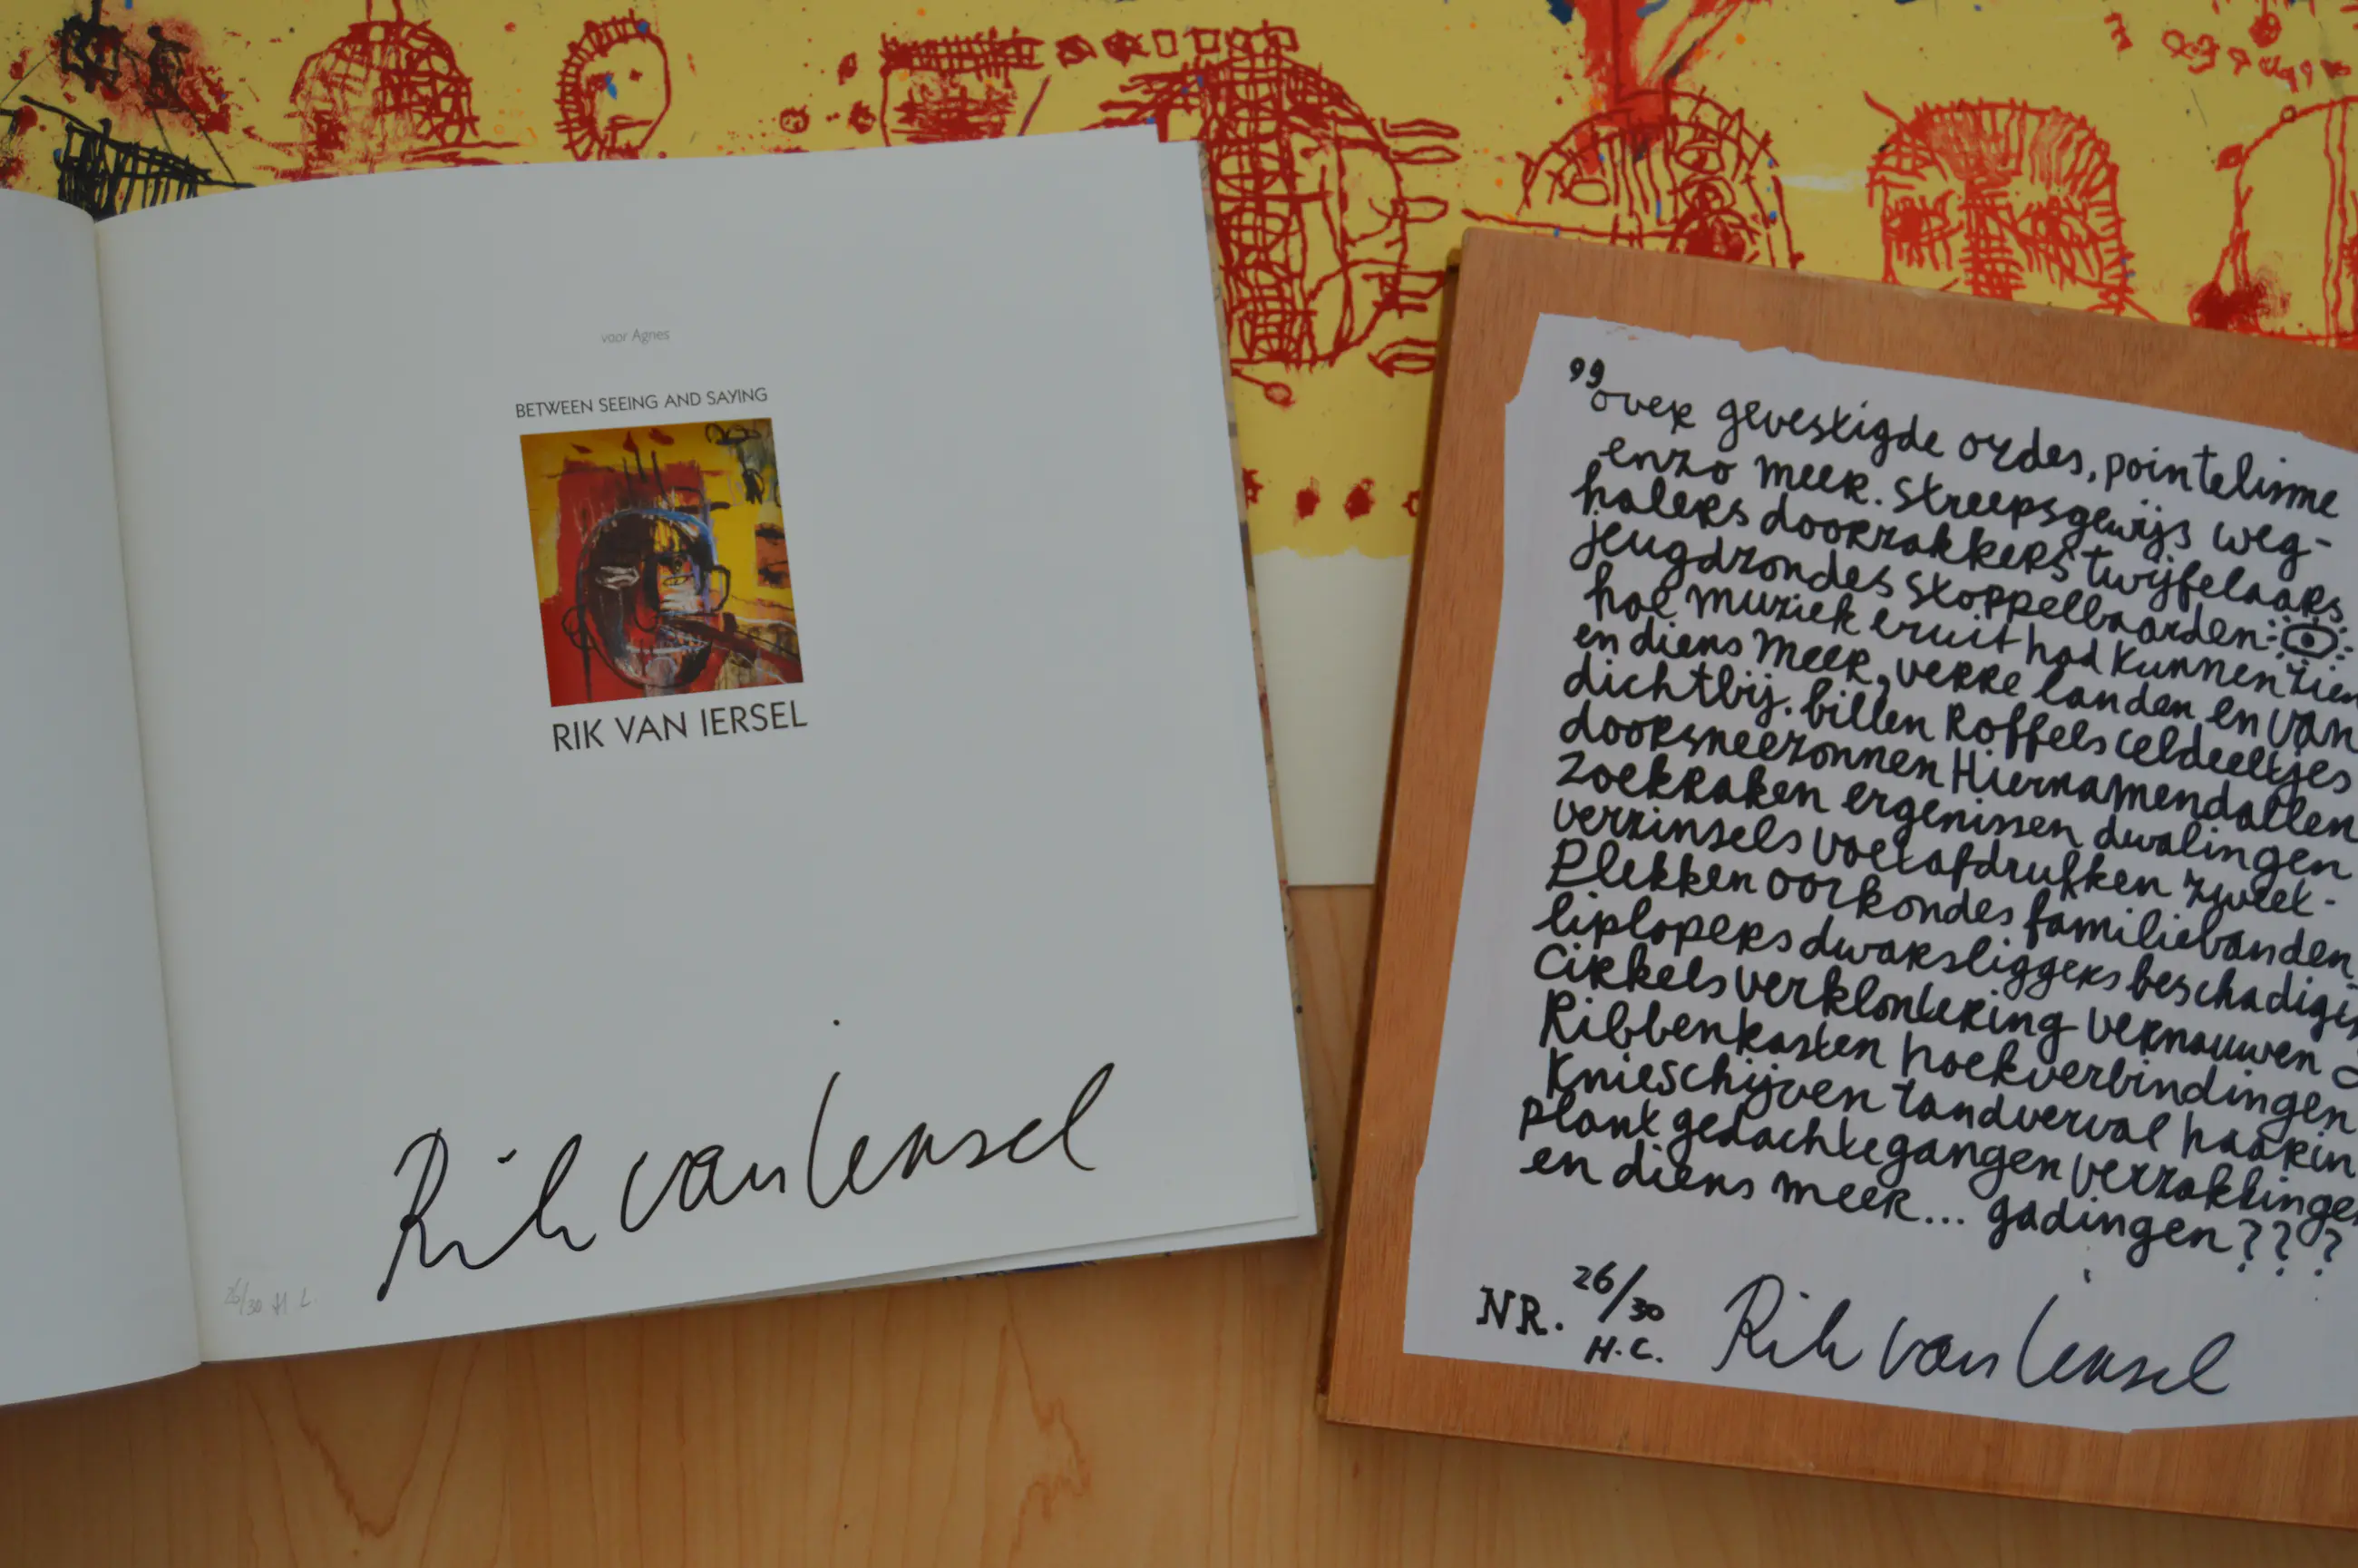 voor Agnes
BETWEEN SEEING AND SAYING
RIK VAN IERSEL
Rik van Iersel
26/30 H C.
"over gevestigde ordes, pointelisme
enzo meer. streepsgewijs weg-
halers doorzakkers twijfelaars
jeugdzondes stoppelbaarden
hoe muziek eruit had kunnen zien
en diens meer, verre landen en van
dichtbij. billen Roffels celdeeltjes
doorsneezonnen Hiernamendallen
Zoekraken ergenissen dwalingen
verzinsels voetafdrukken zweet-
Plekken oorkondes familiebanden
liplopers dwarsliggers beschadigi
Cirkels verklontering vernauwen
Ribbenkasten hoekverbindingen
Knieschijven tandverval haarin
plant gedachtegangen verzakkinge
en diens meer... gadingen???
NR. 26/30
H.C.
Rik van Iersel